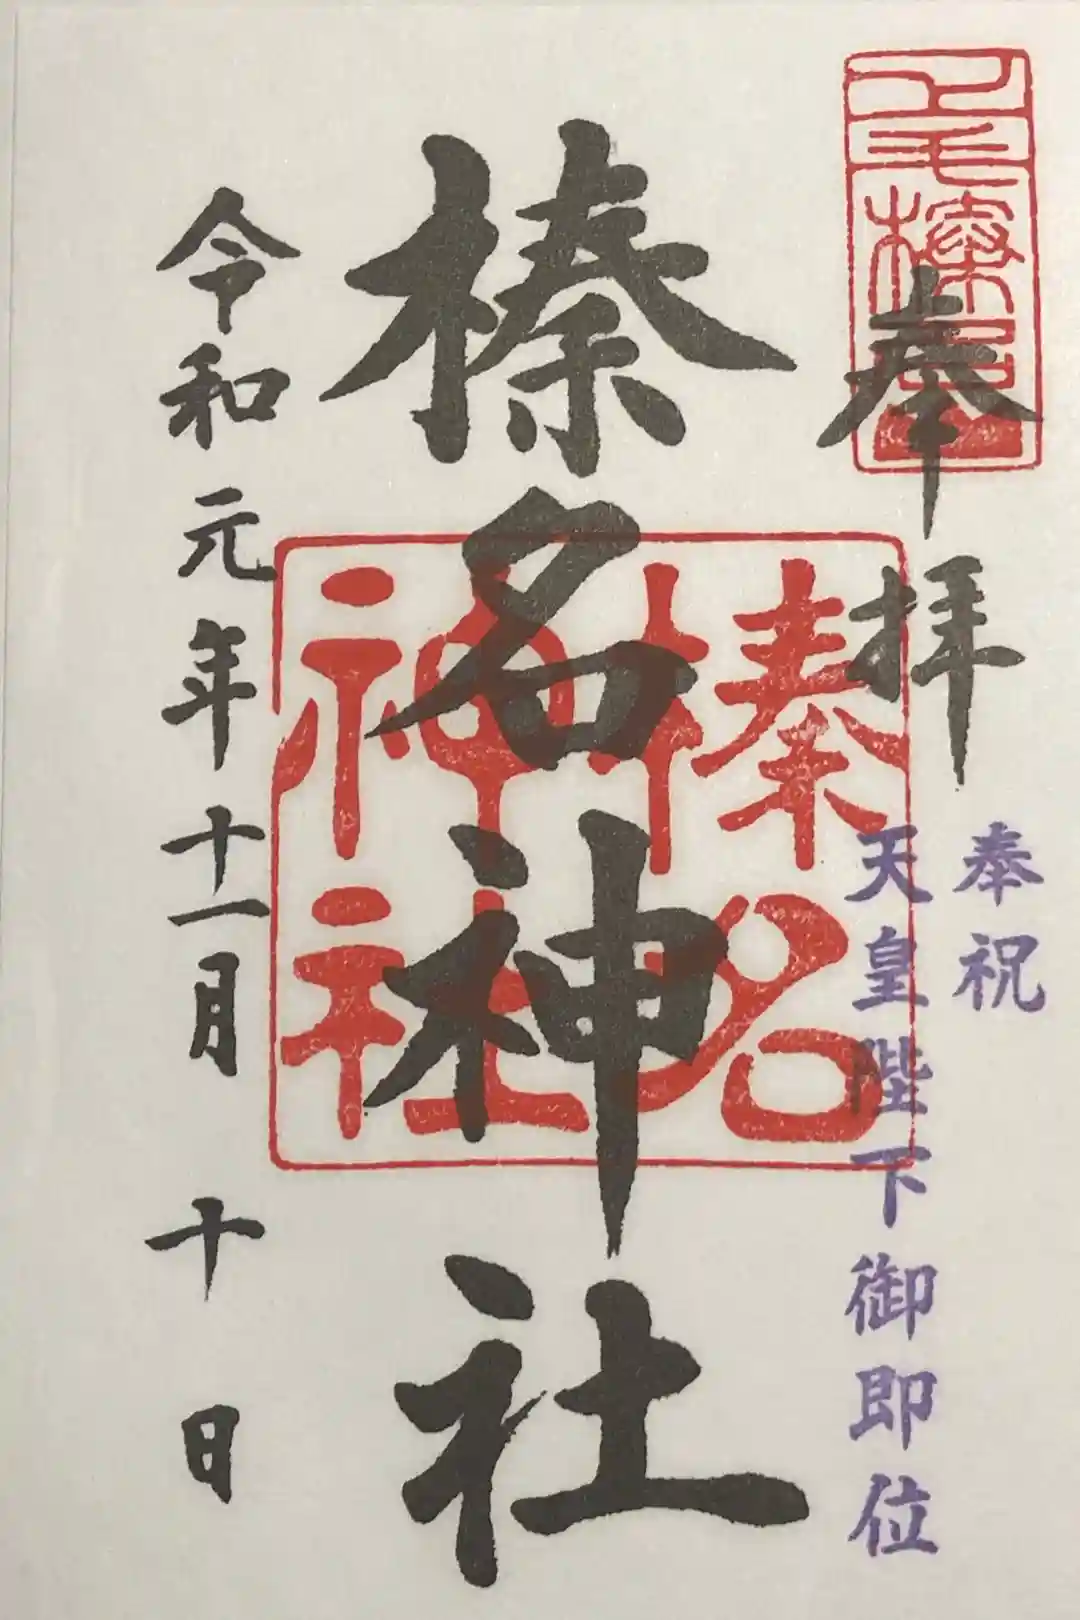 奉拝
奉祝
天皇陛下御即位
榛名神社
榛名
神社
令和元年十一月十日